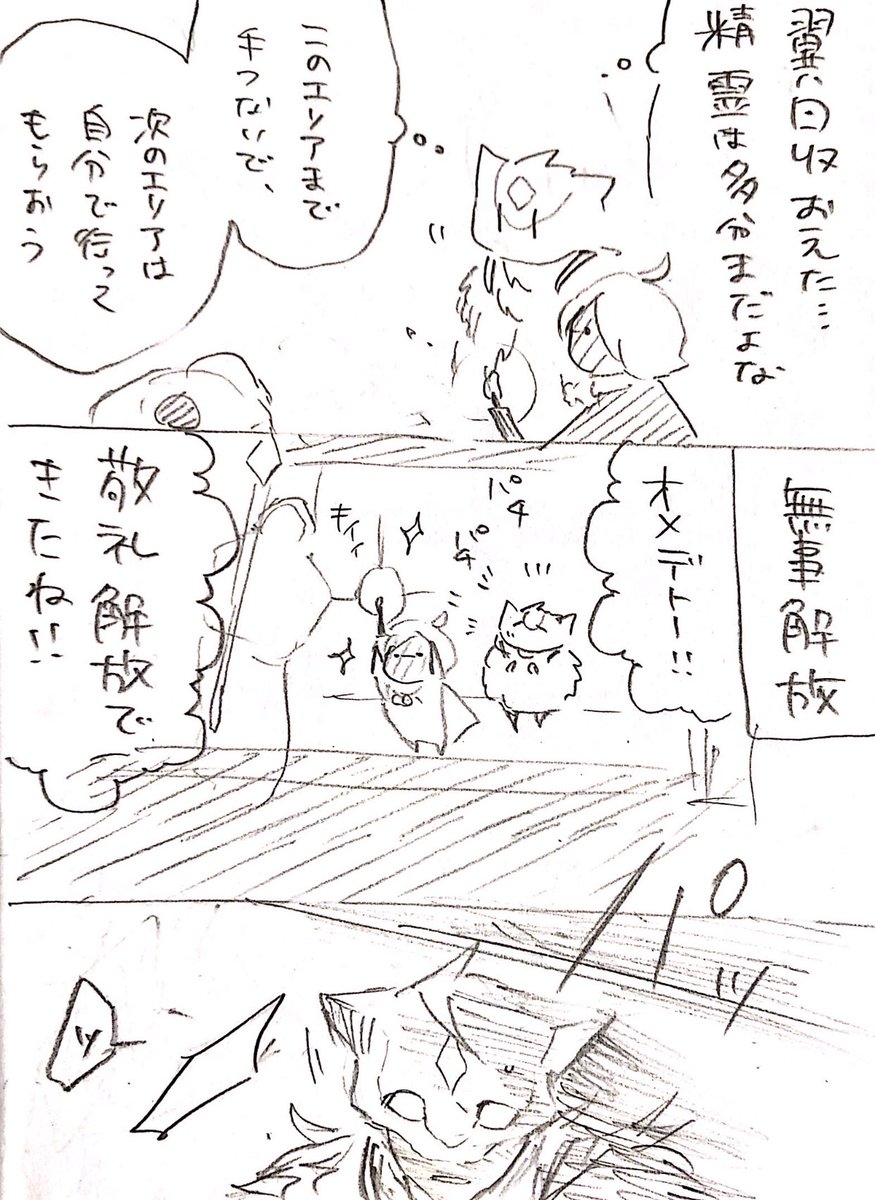 翼回収おえた…
精霊は多分まだよな
このエリアまで
手つないで、
次のエリアは
自分で行って
もらおう
無事解放
オメデトー!!
パチ
パチ
キィィ
敬礼解放で
きたね!!
パッ
ッ